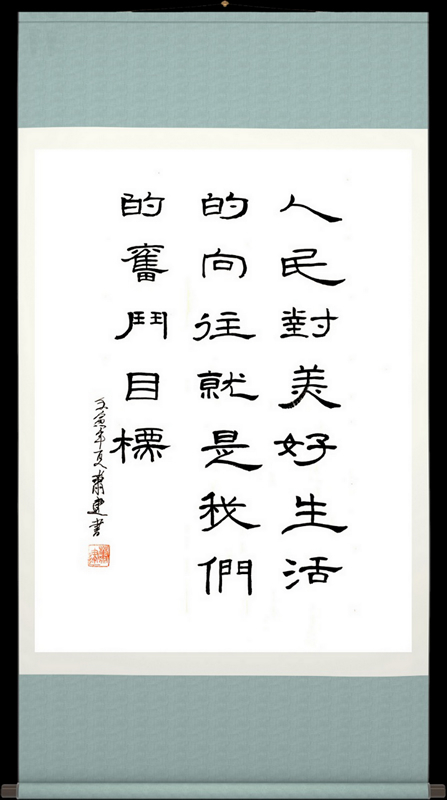 人民對美好生活
的向往就是我們
的奮鬥目標
壬寅年夏肅建書